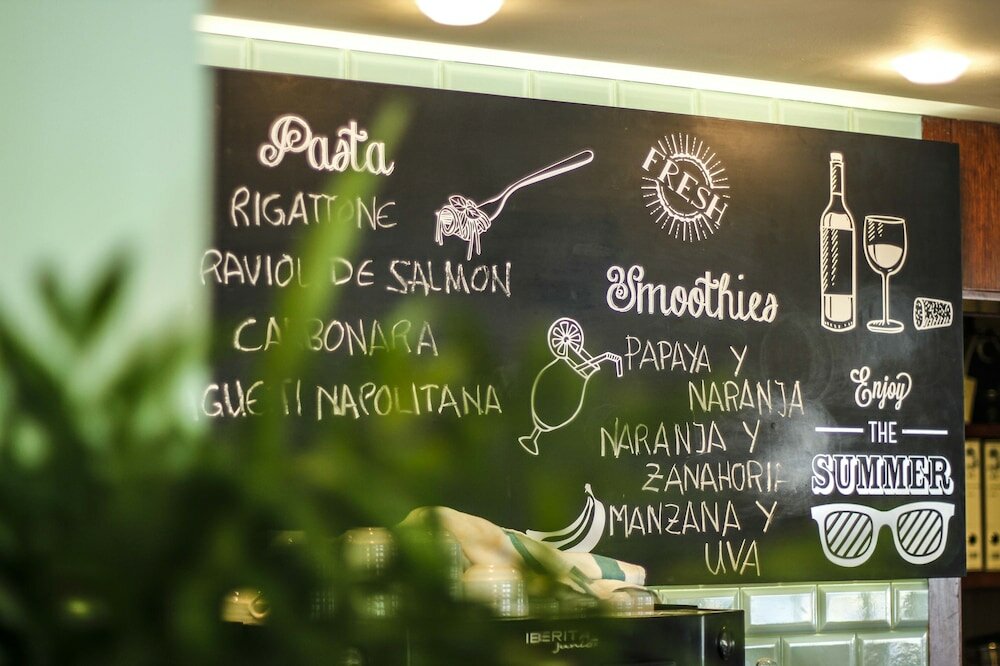 Pasta
RIGATTONE
DE SALMON
NAPOLITANA
FRESH
Smoothies
PAPAYA Y
NARANJA
NARANJA Y
ZANAHORIA
MANZANA Y
UVA
Enjoy
THE
SUMMER
IBERITAL
Junior